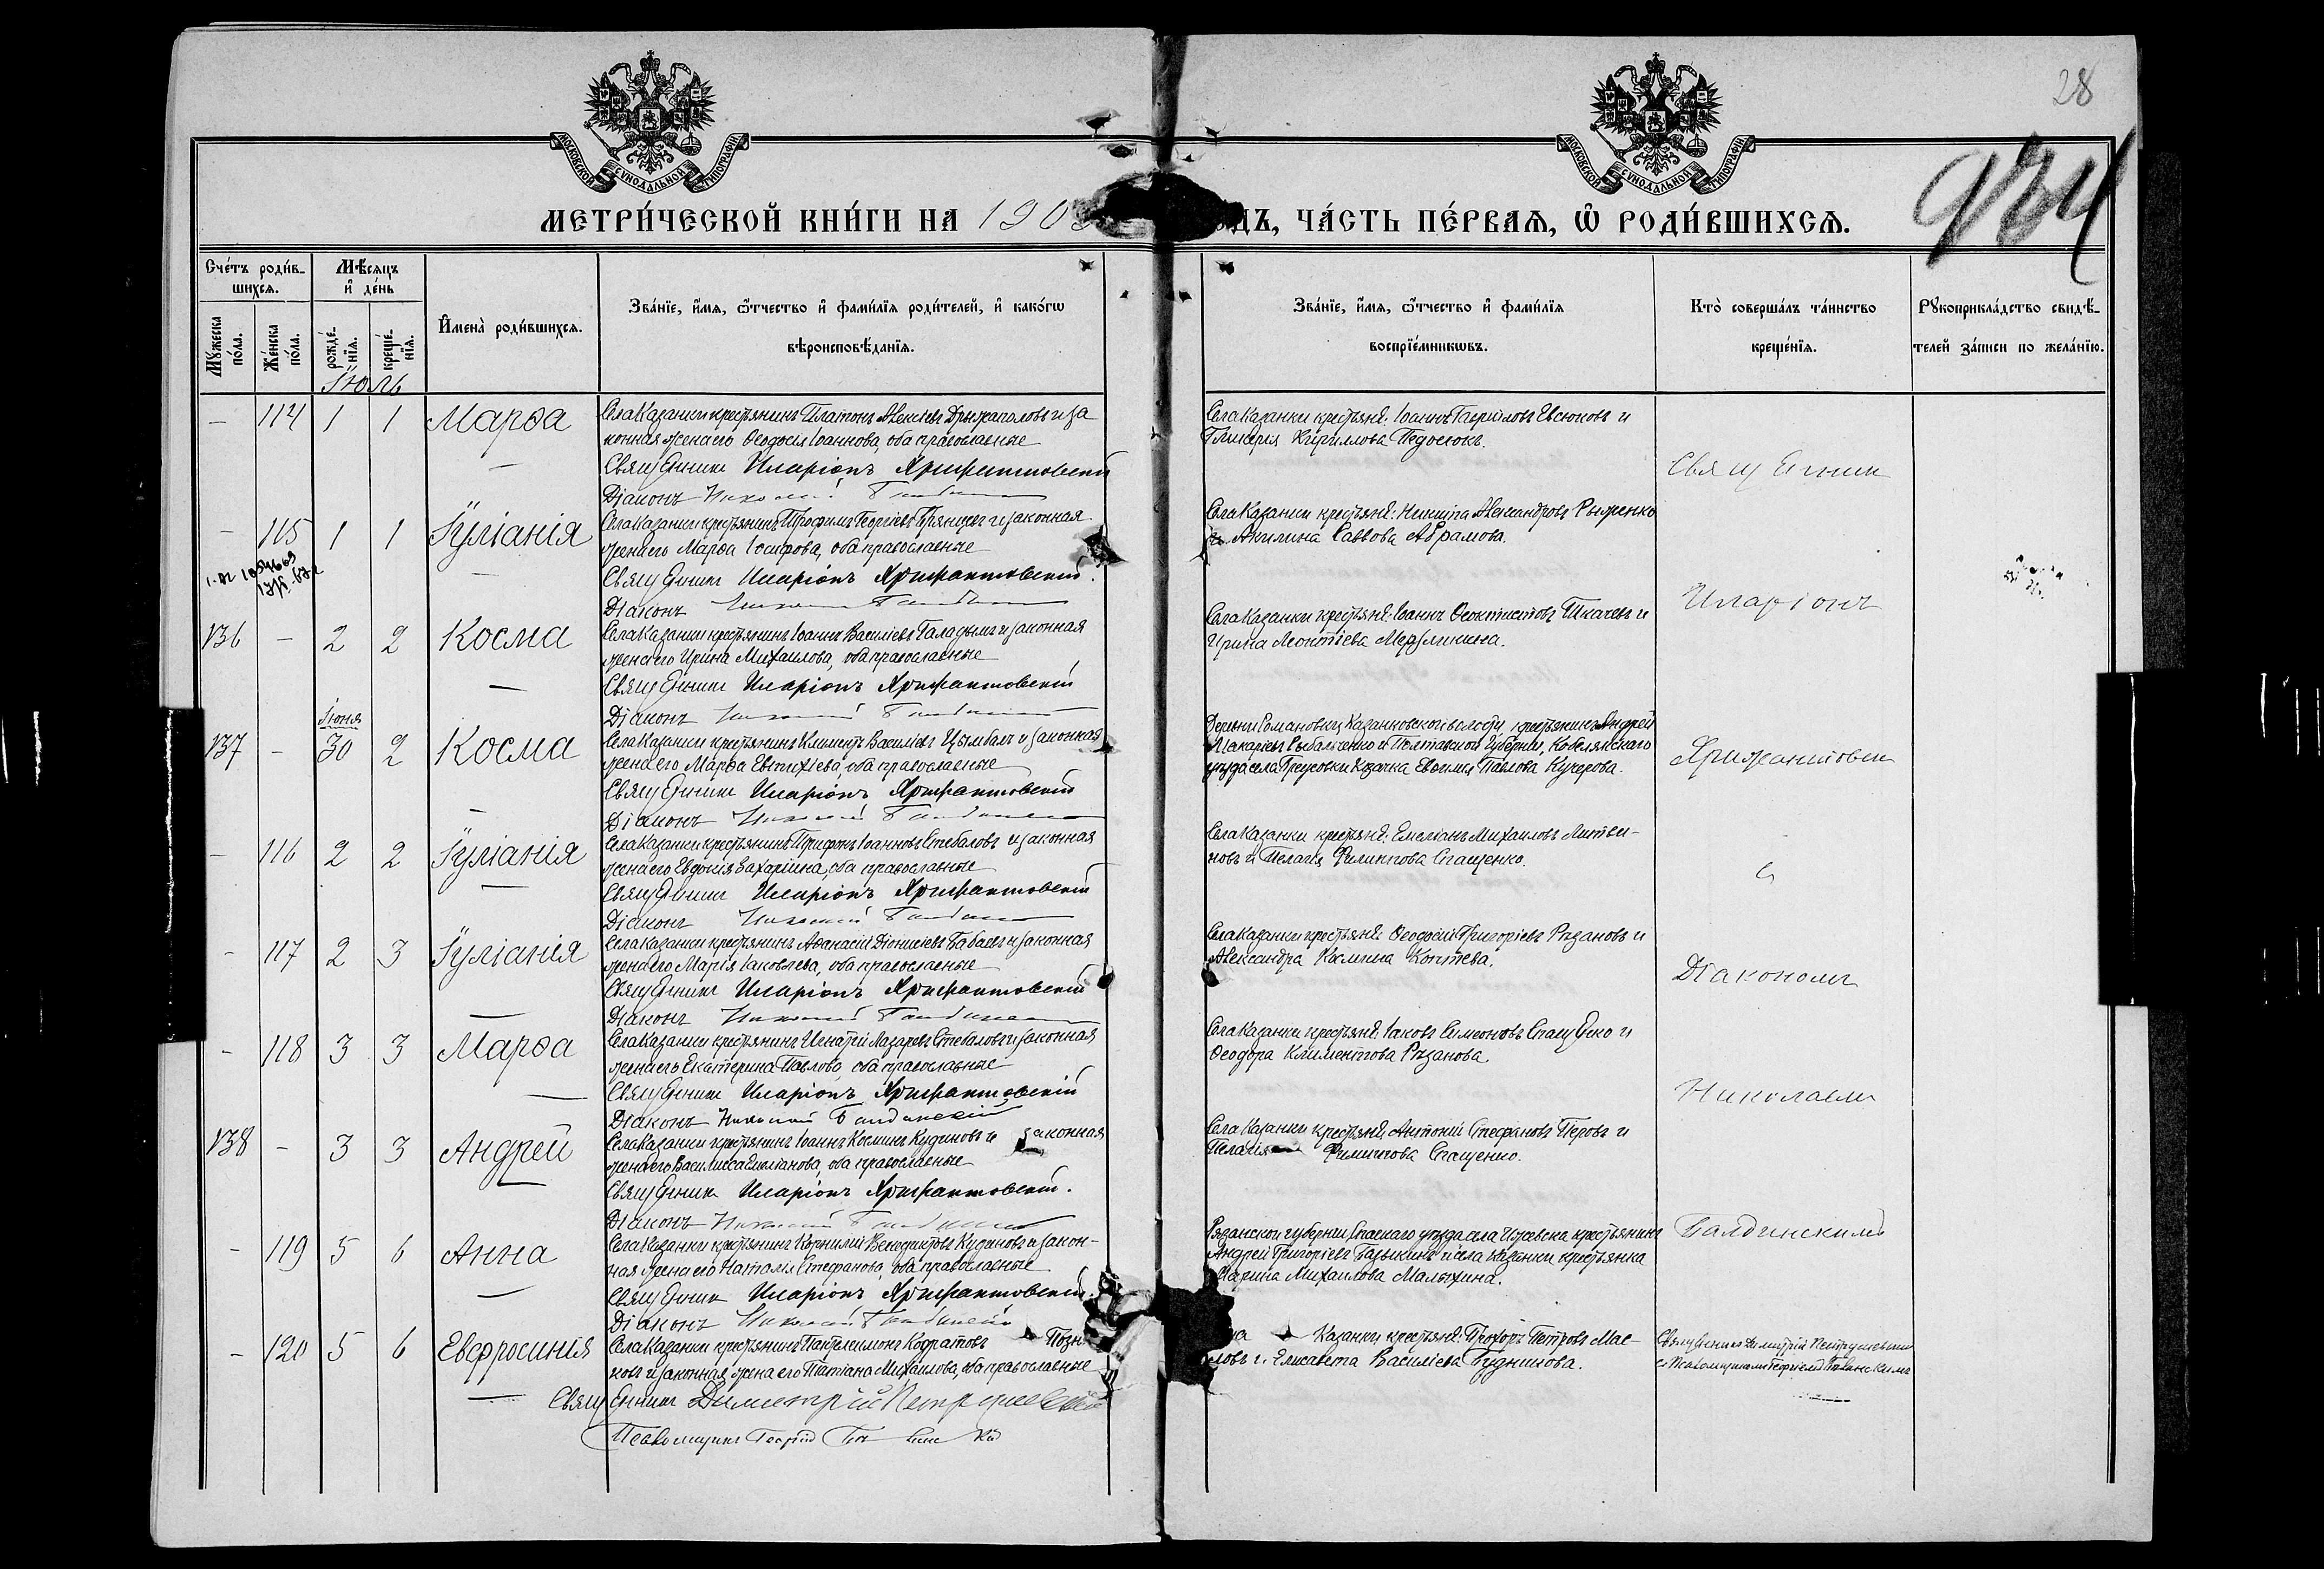 28
934
МОСКОВСКОЙ СУНОДАЛЬНОЙ ТИПОГРАФІИ
МОСКОВСКОЙ СУНОДАЛЬНОЙ ТИПОГРАФІИ
МЕТРИ́ЧЕСКОЙ КНИ́ГИ НА 190
ДЪ, ЧА́СТЬ ПЕ́РВАѦ, Ѡ҆ РОДИ́ВШИХСѦ.
Сче́тъ роди́в-
шихсѧ.
Мѣ́сяцъ
и҆ де́нь
Мꙋ́жеска по́ла.
Же́нска по́ла.
рожде́-нїѧ.
креще́-нїѧ.
И҆мена̀ роди́вшихсѧ.
Зва́нїе, и҆́мѧ, ѻ҆́тчество и҆ фами́лїѧ роди́телей, и҆ како́гѡ
вѣроисповѣ́данїѧ.
Зва́нїе, и҆́мѧ, ѻ҆́тчество и҆ фами́лїѧ
воспрїе́мникѡвъ.
Кто̀ соверша́лъ та́инство
креще́нїѧ.
Рꙋкоприкла́дство свидѣ́-
телей за́писи по жела́нїю.
Іюль
- 114 1 1 Марѳа
Села Казанки крестьянинъ Платонъ Алексіевъ и за
конная жена его Ѳеодосія Іоаннова, оба православные
Священникъ Иларіонъ Хрисантовскій
Діаконъ
Села Казанки крестьяне: Іоаннъ Гавріиловъ Евсюковъ и
Гликерія Кириллова
- 115 1 1 Іуліанія
Села Казанки крестьянинъ Трофимъ Георгіевъ Прянцевъ и законная
жена его Марѳа Іосифова, оба православные
Священникъ Иларіонъ Хрисантовскій.
Діаконъ
Села Казанки крестьяне: Никита Александровъ Рыженко
и Акилина Саввова Абрамова.
136 - 2 2 Косма
Села Казанки крестьянинъ Іоаннъ Василіевъ Галадымъ и законная
жена его Ирина Михаилова, оба православные
Священникъ Иларіонъ Хрисантовскій
Діаконъ
Села Казанки крестьяне: Іоаннъ Ѳеоктистовъ Ткачевъ и
Ирина Леонтіева Мерзликина.
Іюня
137 - 30 2 Косма
Села Казанки крестьянинъ Климентъ Василіевъ Цымбалъ и законная
жена его Марѳа Евтихіева, оба православные
Священникъ Иларіонъ Хрисантовскій
Діаконъ
Деревни Романовки, Казанковской волости, крестьянинъ Андрей
Макаріевъ Рыбальченко и Полтавской Губерніи, Кобелякскаго
уѣзда села козачка Евѳимія Павлова Кучерова.
- 116 2 2 Іуліанія
Села Казанки крестьянинъ Трифонъ Іоанновъ Стебаловъ и законная
жена его Евдокія Захаріина, оба православные
Священникъ Иларіонъ Хрисантовскій
Діаконъ
Села Казанки крестьяне: Емеліанъ Михаиловъ Литви-
новъ и Пелагія Филиппова Спащенко.
- 117 2 3 Іуліанія
Села Казанки крестьянинъ Аѳанасій Діонисіевъ Бабаевъ и законная
жена его Марія Іаковлева, оба православные
Священникъ Иларіонъ Хрисантовскій
Діаконъ
Села Казанки крестьяне: Ѳеодосій Григоріевъ Рязановъ и
Александра Космина Коптева.
- 118 3 3 Марѳа
Села Казанки крестьянинъ Игнатій Лазаревъ Стебаловъ и законная
жена его Екатерина Павлова, оба православные
Священникъ Иларіонъ Хрисантовскій
Діаконъ Николай Балдинскій
Села Казанки крестьяне: Іаковъ Симеоновъ Спащенко и
Ѳеодора Климентова Рязанова.
138 - 3 3 Андрей
Села Казанки крестьянинъ Іоаннъ Косминъ Кудиновъ и законная
жена его Василисса Емиліанова, оба православные
Священникъ Иларіонъ Хрисантовскій.
Діаконъ
Села Казанки крестьяне: Антоній Стефановъ Перовъ и
Пелагія Филиппова Спащенко.
- 119 5 6 Анна
Села Казанки крестьянинъ Корнилій Венедиктовъ Кудиновъ и закон-
ная жена его Наталія Стефанова, оба православные
Священникъ Иларіонъ Хрисантовскій.
Діаконъ
Рязанской губерніи, Спасскаго уѣзда села Ижевска крестьянинъ
Андрей Григоріевъ и села Казанки крестьянка
Марина Михаилова Малыхина.
- 120 5 6 Евфросинія
Села Казанки крестьянинъ Пантелеимонъ Кодратовъ Позня
ковъ и законная жена его Татіана Михаилова, оба православные
Священникъ Димитрій Петрушевскій
Псаломщикъ Георгій
Казанки крестьяне: Прохоръ Петровъ Мас-
ловъ и Елисавета Василіева Гудникова.
Священник
Иларіонъ
Хрисантовскій
с
Діакономъ
Николаемъ
Балдинскимъ
Священникъ Димитрій Петрушевскій
съ Псаломщикомъ Георгіемъ